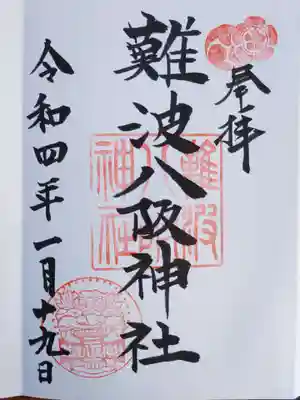 奉拝
難波八阪神社
難波八阪神社
令和四年一月十九日